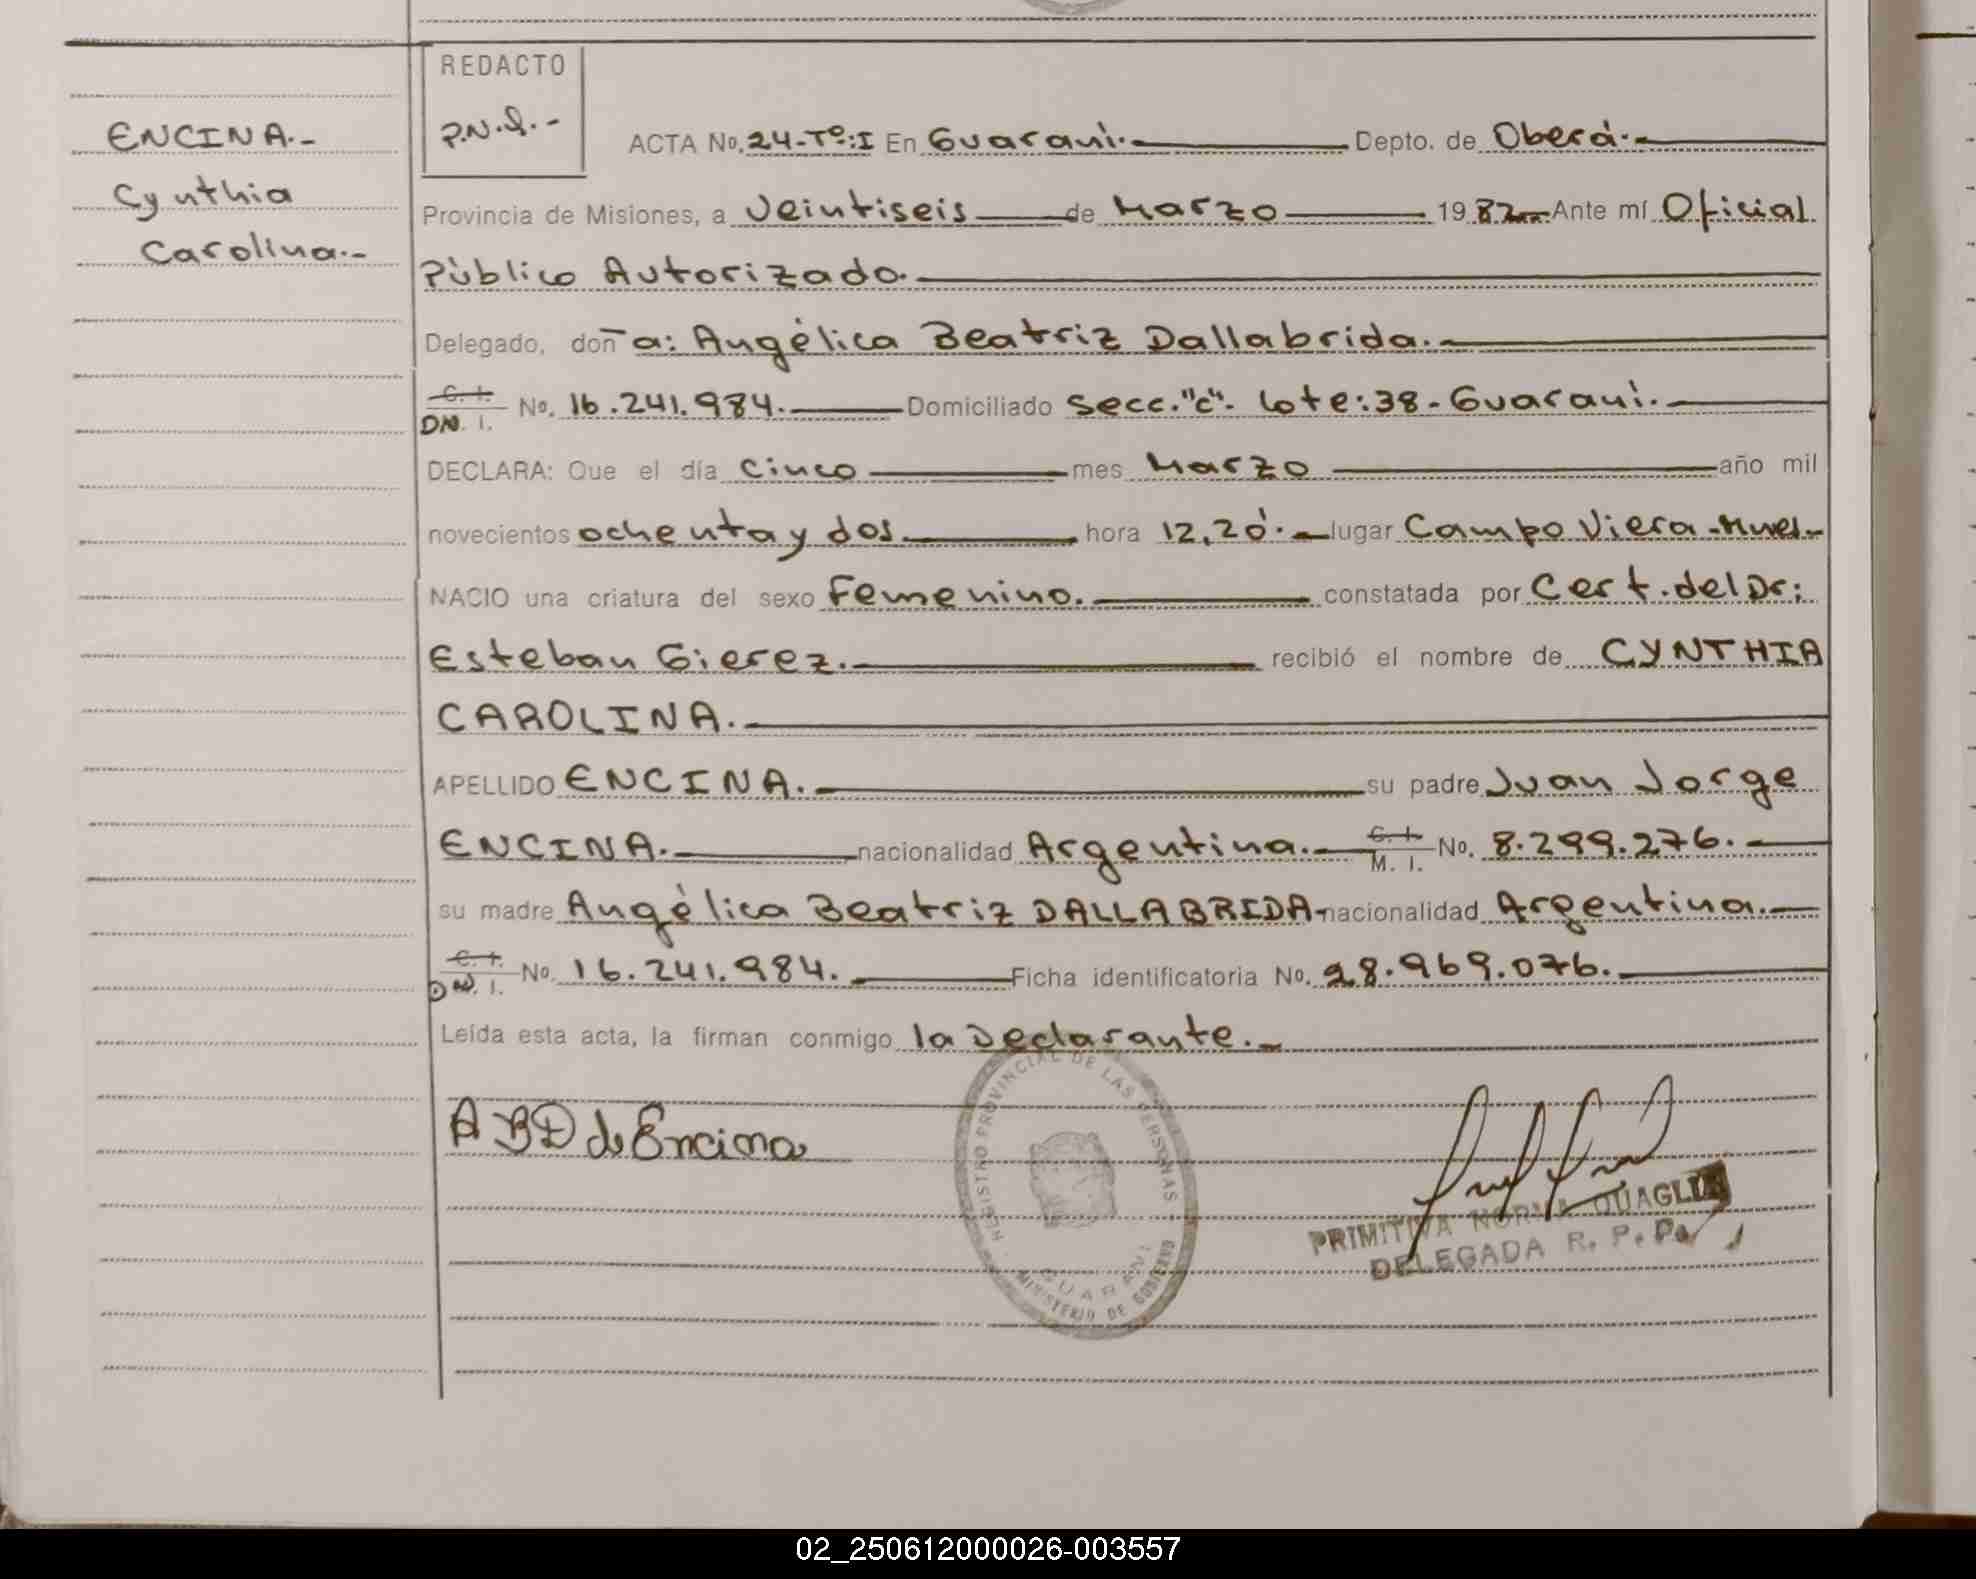 REDACTO
P.N.Q.-
ENCINA.-
Cynthia
Carolina.-
ACTA No. 24-Tº:I En Guaraní. Depto. de Oberá.
Provincia de Misiones, a Veintiseis de Marzo 1982 Ante mí Oficial
Público Autorizado.
Delegado, don a: Angélica Beatriz Dallabrida.
C. I.
DN. I. No. 16.241.984. Domiciliado Secc. "C". Lote:38-Guaraní.
DECLARA: Que el día Cinco mes Marzo año mil
novecientos ochenta y dos hora 12,20. lugar Campo Viera-Mnes-
NACIO una criatura del sexo Femenino. constatada por Cert. del Dr:
Esteban Gierez. recibió el nombre de CYNTHIA
CAROLINA.
APELLIDO ENCINA. su padre Juan Jorge
ENCINA. nacionalidad Argentina. C. I. M. I. No. 8.299.276.
su madre Angélica Beatriz DALLABRIDA- nacionalidad Argentina.
C. I.
DN. I. No. 16.241.984. Ficha identificatoria No. 28.969.076.
Leída esta acta, la firman conmigo la Declarante.
ABD de Encina
REGISTRO PROVINCIAL DE LAS PERSONAS
GUARANI
MINISTERIO DE GOBIERNO
PRIMITIVA NORMA QUAGLIA
DELEGADA R. P. P.
02_250612000026-003557